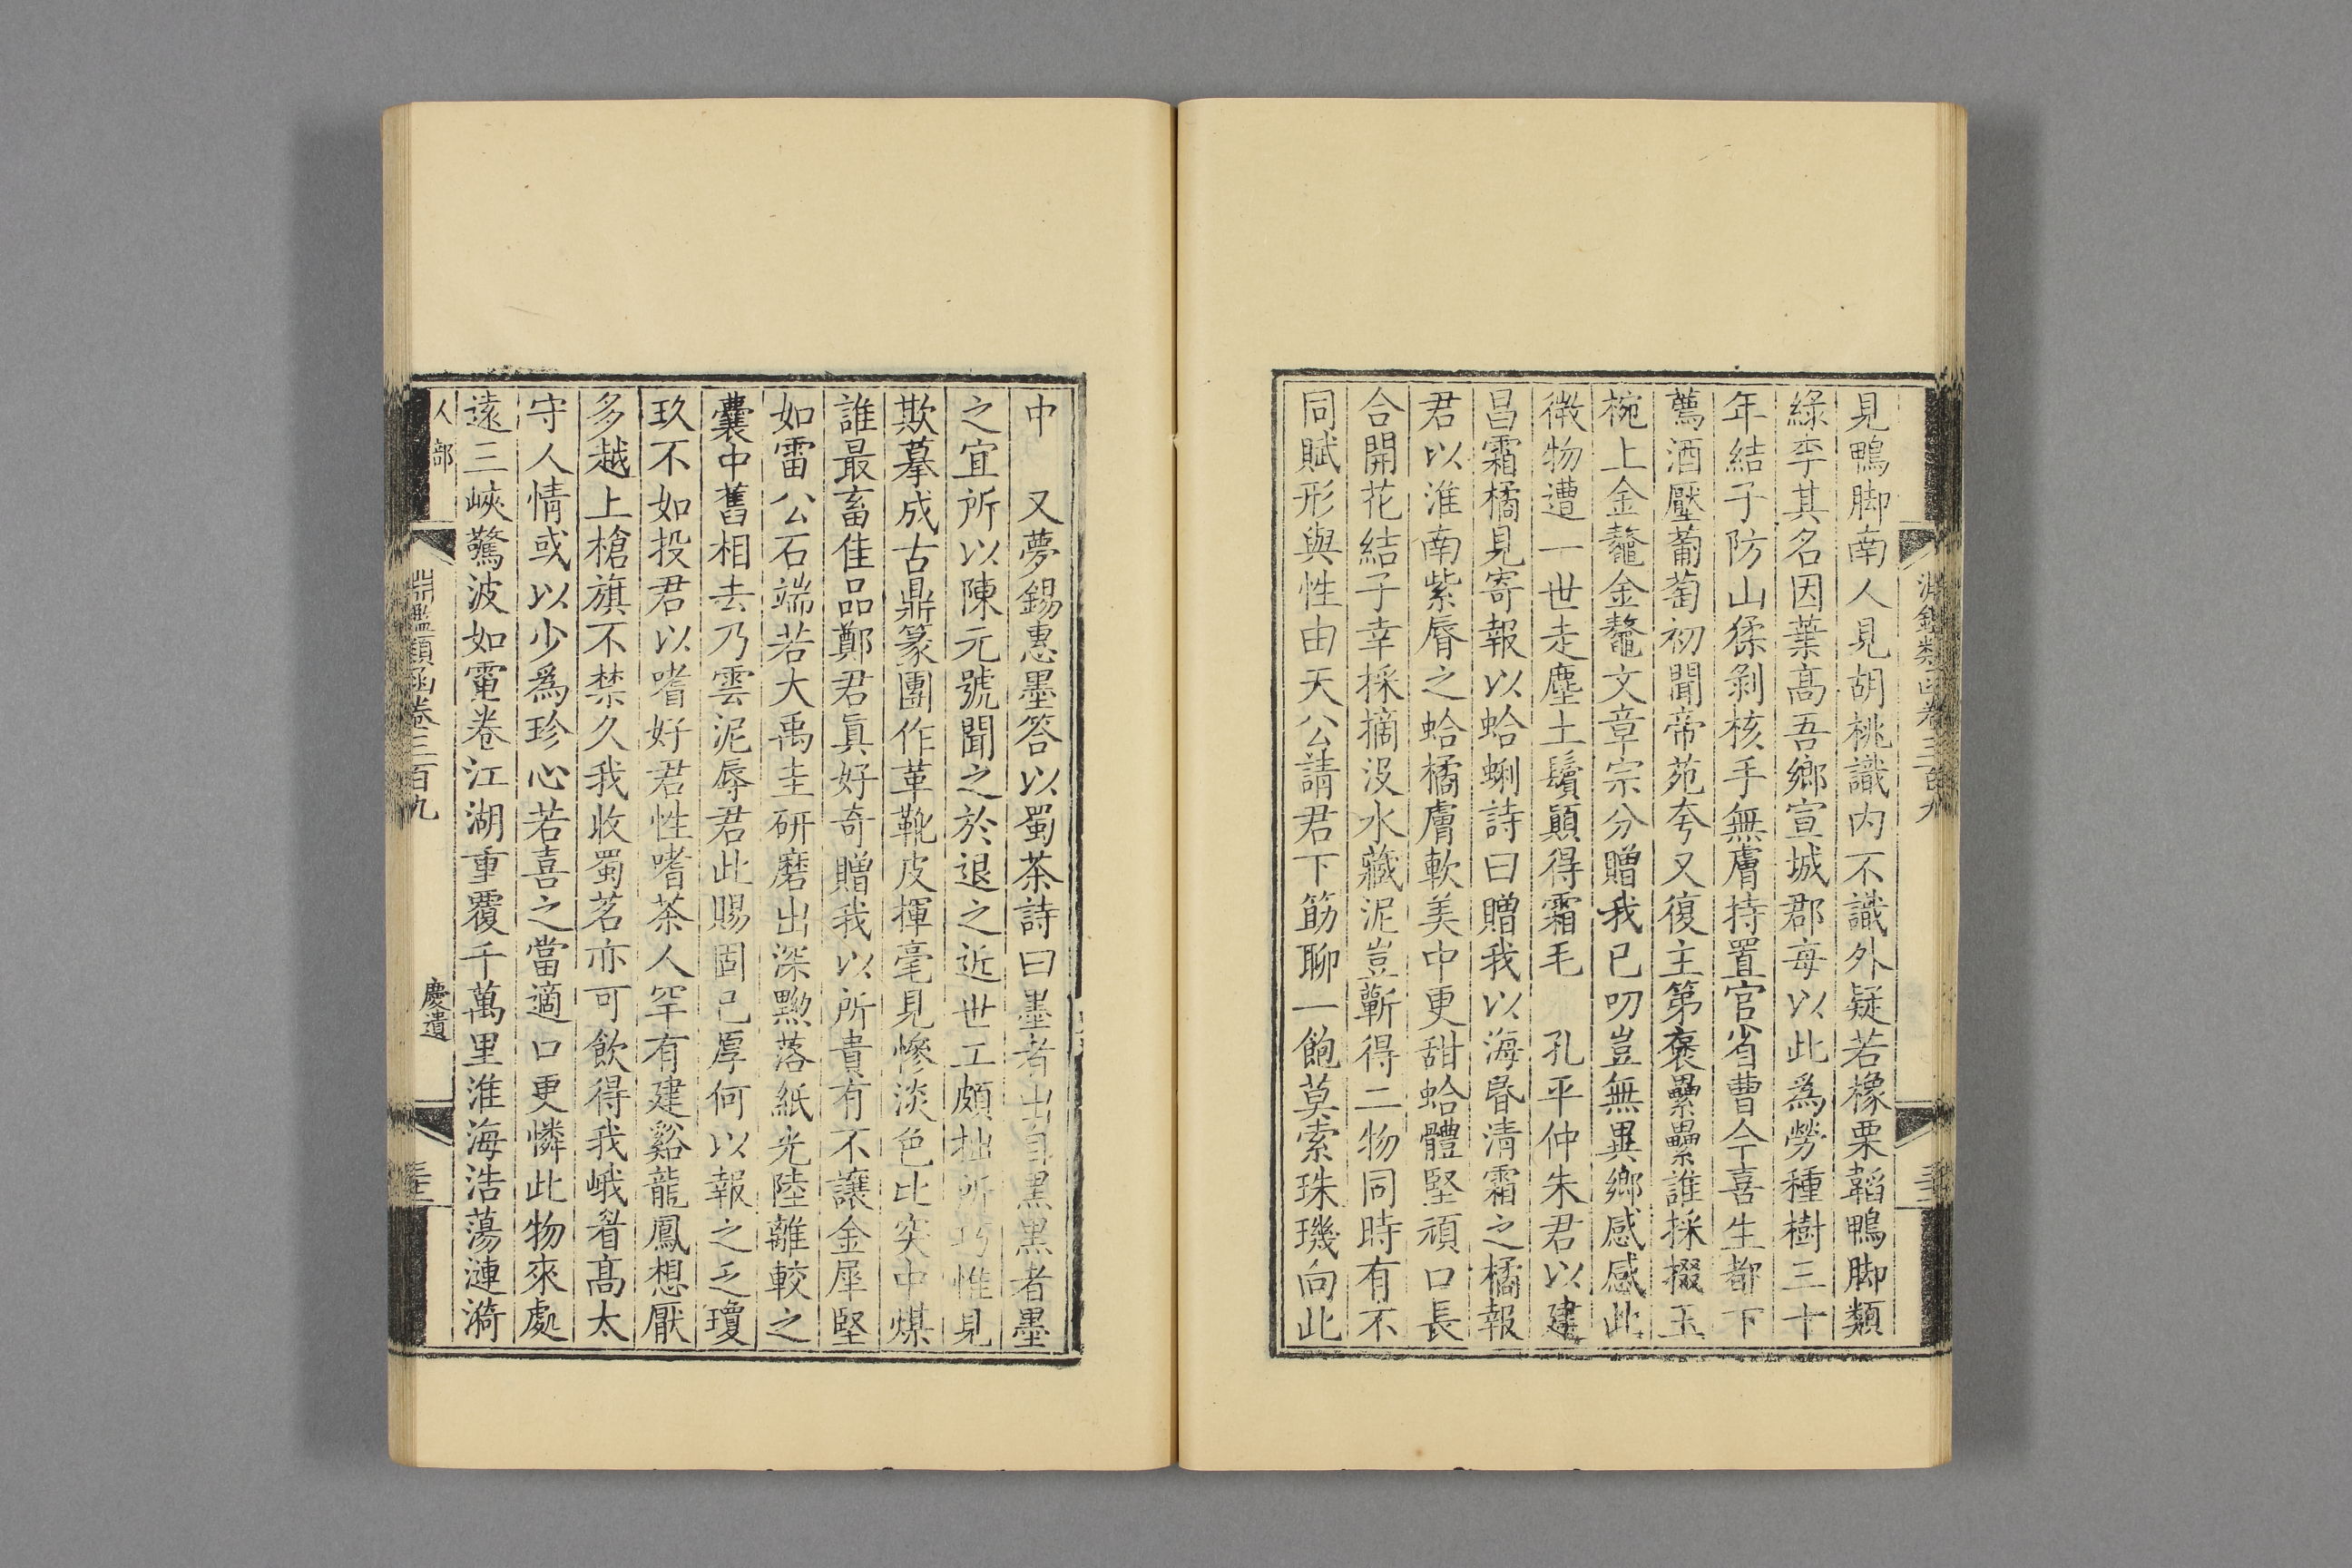 見鴨脚南人見胡桃識内不識外疑若橡栗韜鴨脚類
綠李其名因葉髙吾鄉宣城郡每以此爲勞種樹三十
年結子防山猱剥核手無膚持置官省曹今喜生都下
薦酒壓葡萄初聞帝苑夸又復主第褒纍纍誰採掇玉
椀上金鼇金鼇文章宗分贈我已叨豈無異鄉感感此
微物遭一世走塵土鬢顚得霜毛　孔平仲朱君以建
昌霜橘見寄報以蛤蜊詩曰贈我以海昬清霜之橘報
君以淮南紫脣之蛤橘膚軟美中更甜蛤體堅頑口長
合開花結子幸採摘没水藏泥豈蘄得二物同時有不
同賦形與性由天公請君下筯聊一飽莫索珠璣向此
中　又夢錫惠墨答以蜀茶詩曰墨者出自黒黒者墨
之宜所以陳元號聞之於退之近世工頗拙所巧惟見
欺摹成古鼎篆團作革靴皮揮毫見慘淡色比突中煤
誰最畜佳品鄭君眞好奇贈我以所貴有不讓金犀堅
如雷公石端若大禹圭研磨出深黝落紙光陸離較之
囊中舊相去乃雲泥辱君此賜固已厚何以報之乏瓊
玖不如投君以嗜好君性嗜茶人罕有建谿龍鳳想厭
多越上槍旗不禁久我收蜀茗亦可飲得我峨眉髙太
守人情或以少爲珍心若喜之當適口更憐此物來處
遠三峽驚波如電卷江湖重覆千萬里淮海浩蕩連漪
人部
淵鑑類函卷三百九
慶遺